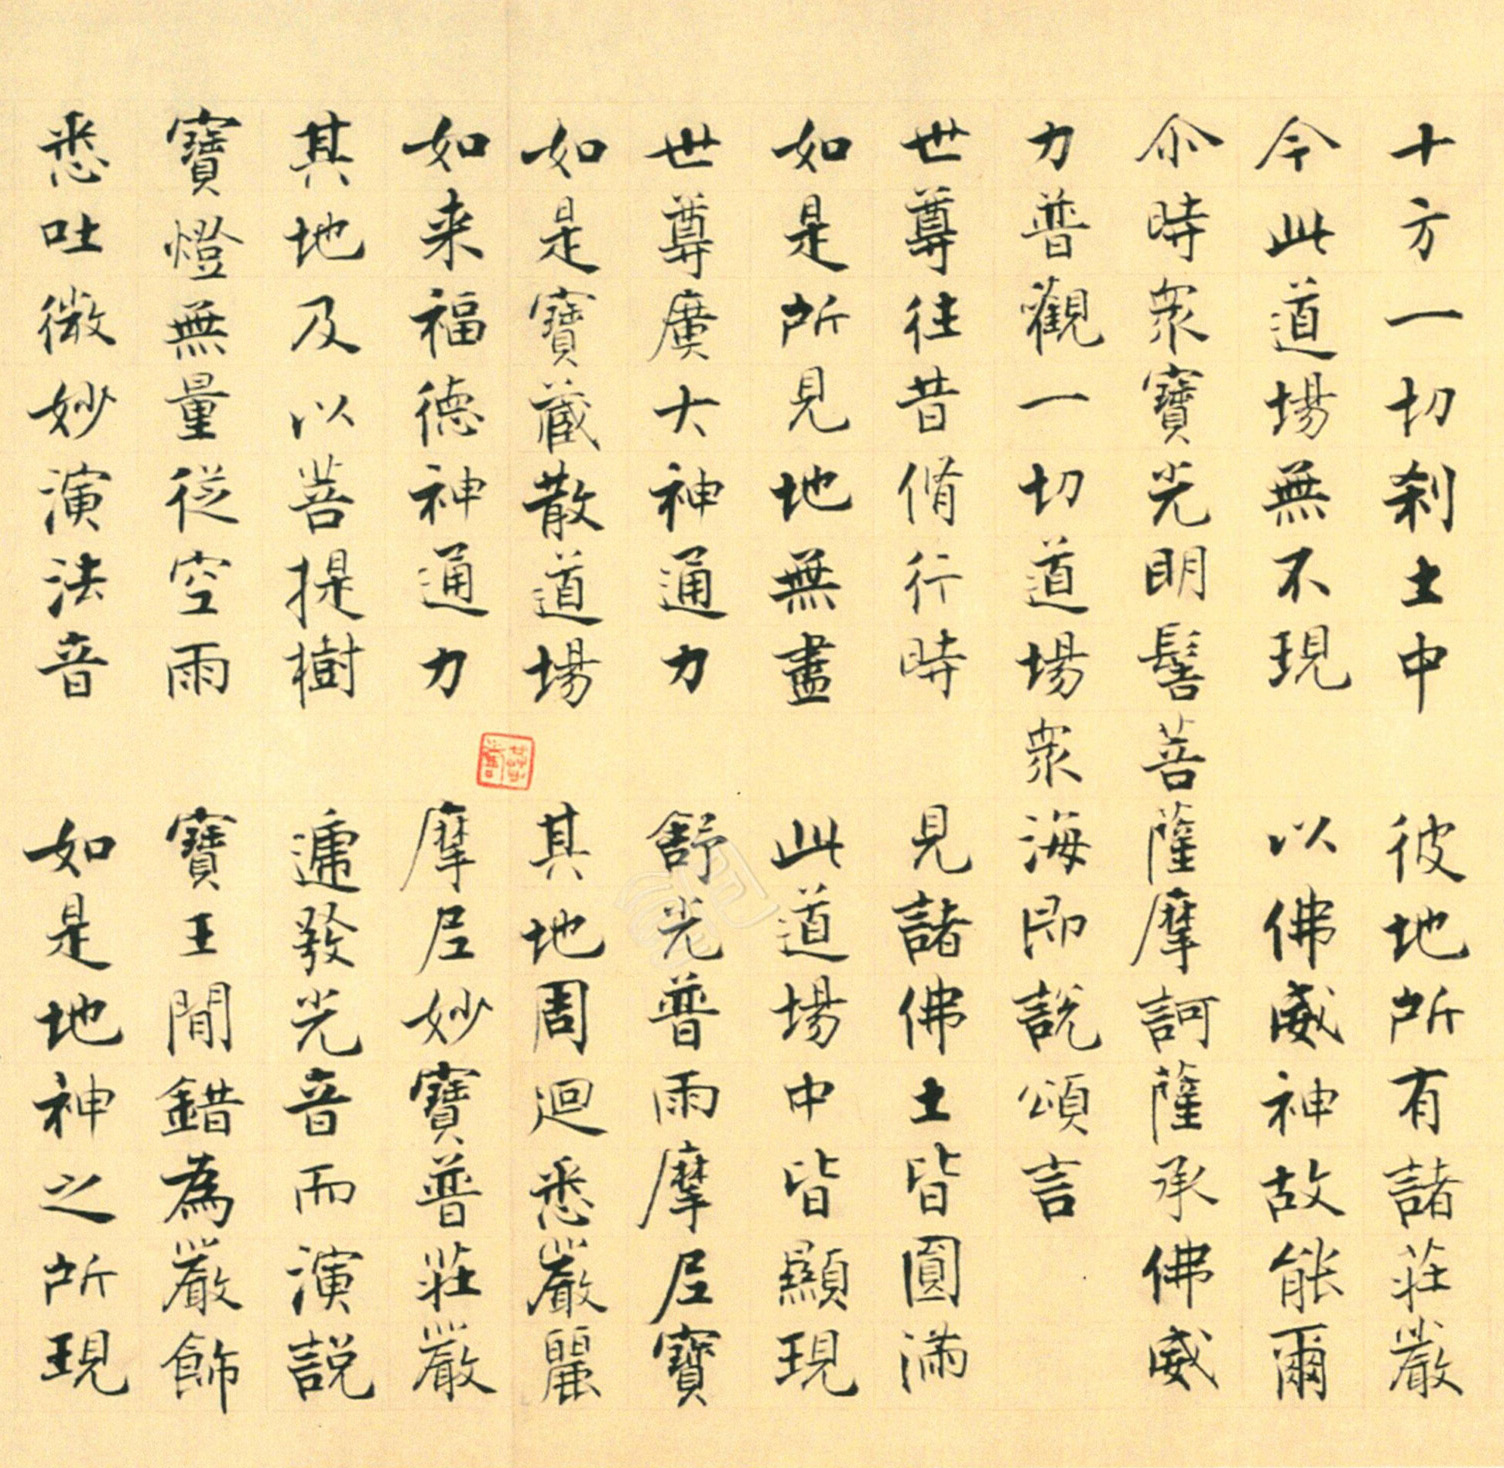 十方一切刹土中 彼地所有諸莊嚴
今此道場無不現 以佛威神故能爾
尒時衆寶光明髻菩薩摩訶薩承佛威
力普觀一切道場衆海即說頌言
世尊往昔脩行時 見諸佛土皆圓滿
如是所見地無盡 此道場中皆顯現
世尊廣大神通力 舒光普雨摩尼寶
如是寶蔵散道場 其地周迴悉嚴麗
如来福德神通力 摩尼妙寶普莊嚴
其地及以菩提樹 遞發光音而演説
寶燈無量從空雨 寶王間錯為嚴飾
悉吐微妙演法音 如是地神之所現